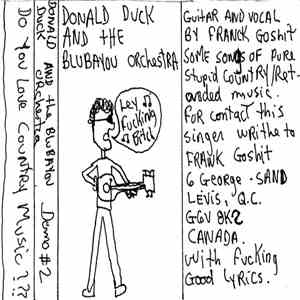 Do You Love Country Music ???
DONALD DUCK AND the BLUBAYOU ORCHESTRA Demo #2
DONALD DUCK
AND THE
BLUBAYOU ORCHESTRA
Hey
Fucking
Bitch
GUITAR AND VOCAL
BY FRANCK GOSHIT
SOME SONGS OF PURE
STUPID COUNTRY/Ret-
arded music.
FOR CONTACT this
singer writhe to
FRANK GOSHIT
6 GEORGE-SAND
LEVIS, Q.C.
G6V 8K2
CANADA.
With fucking
Good LYRICS.